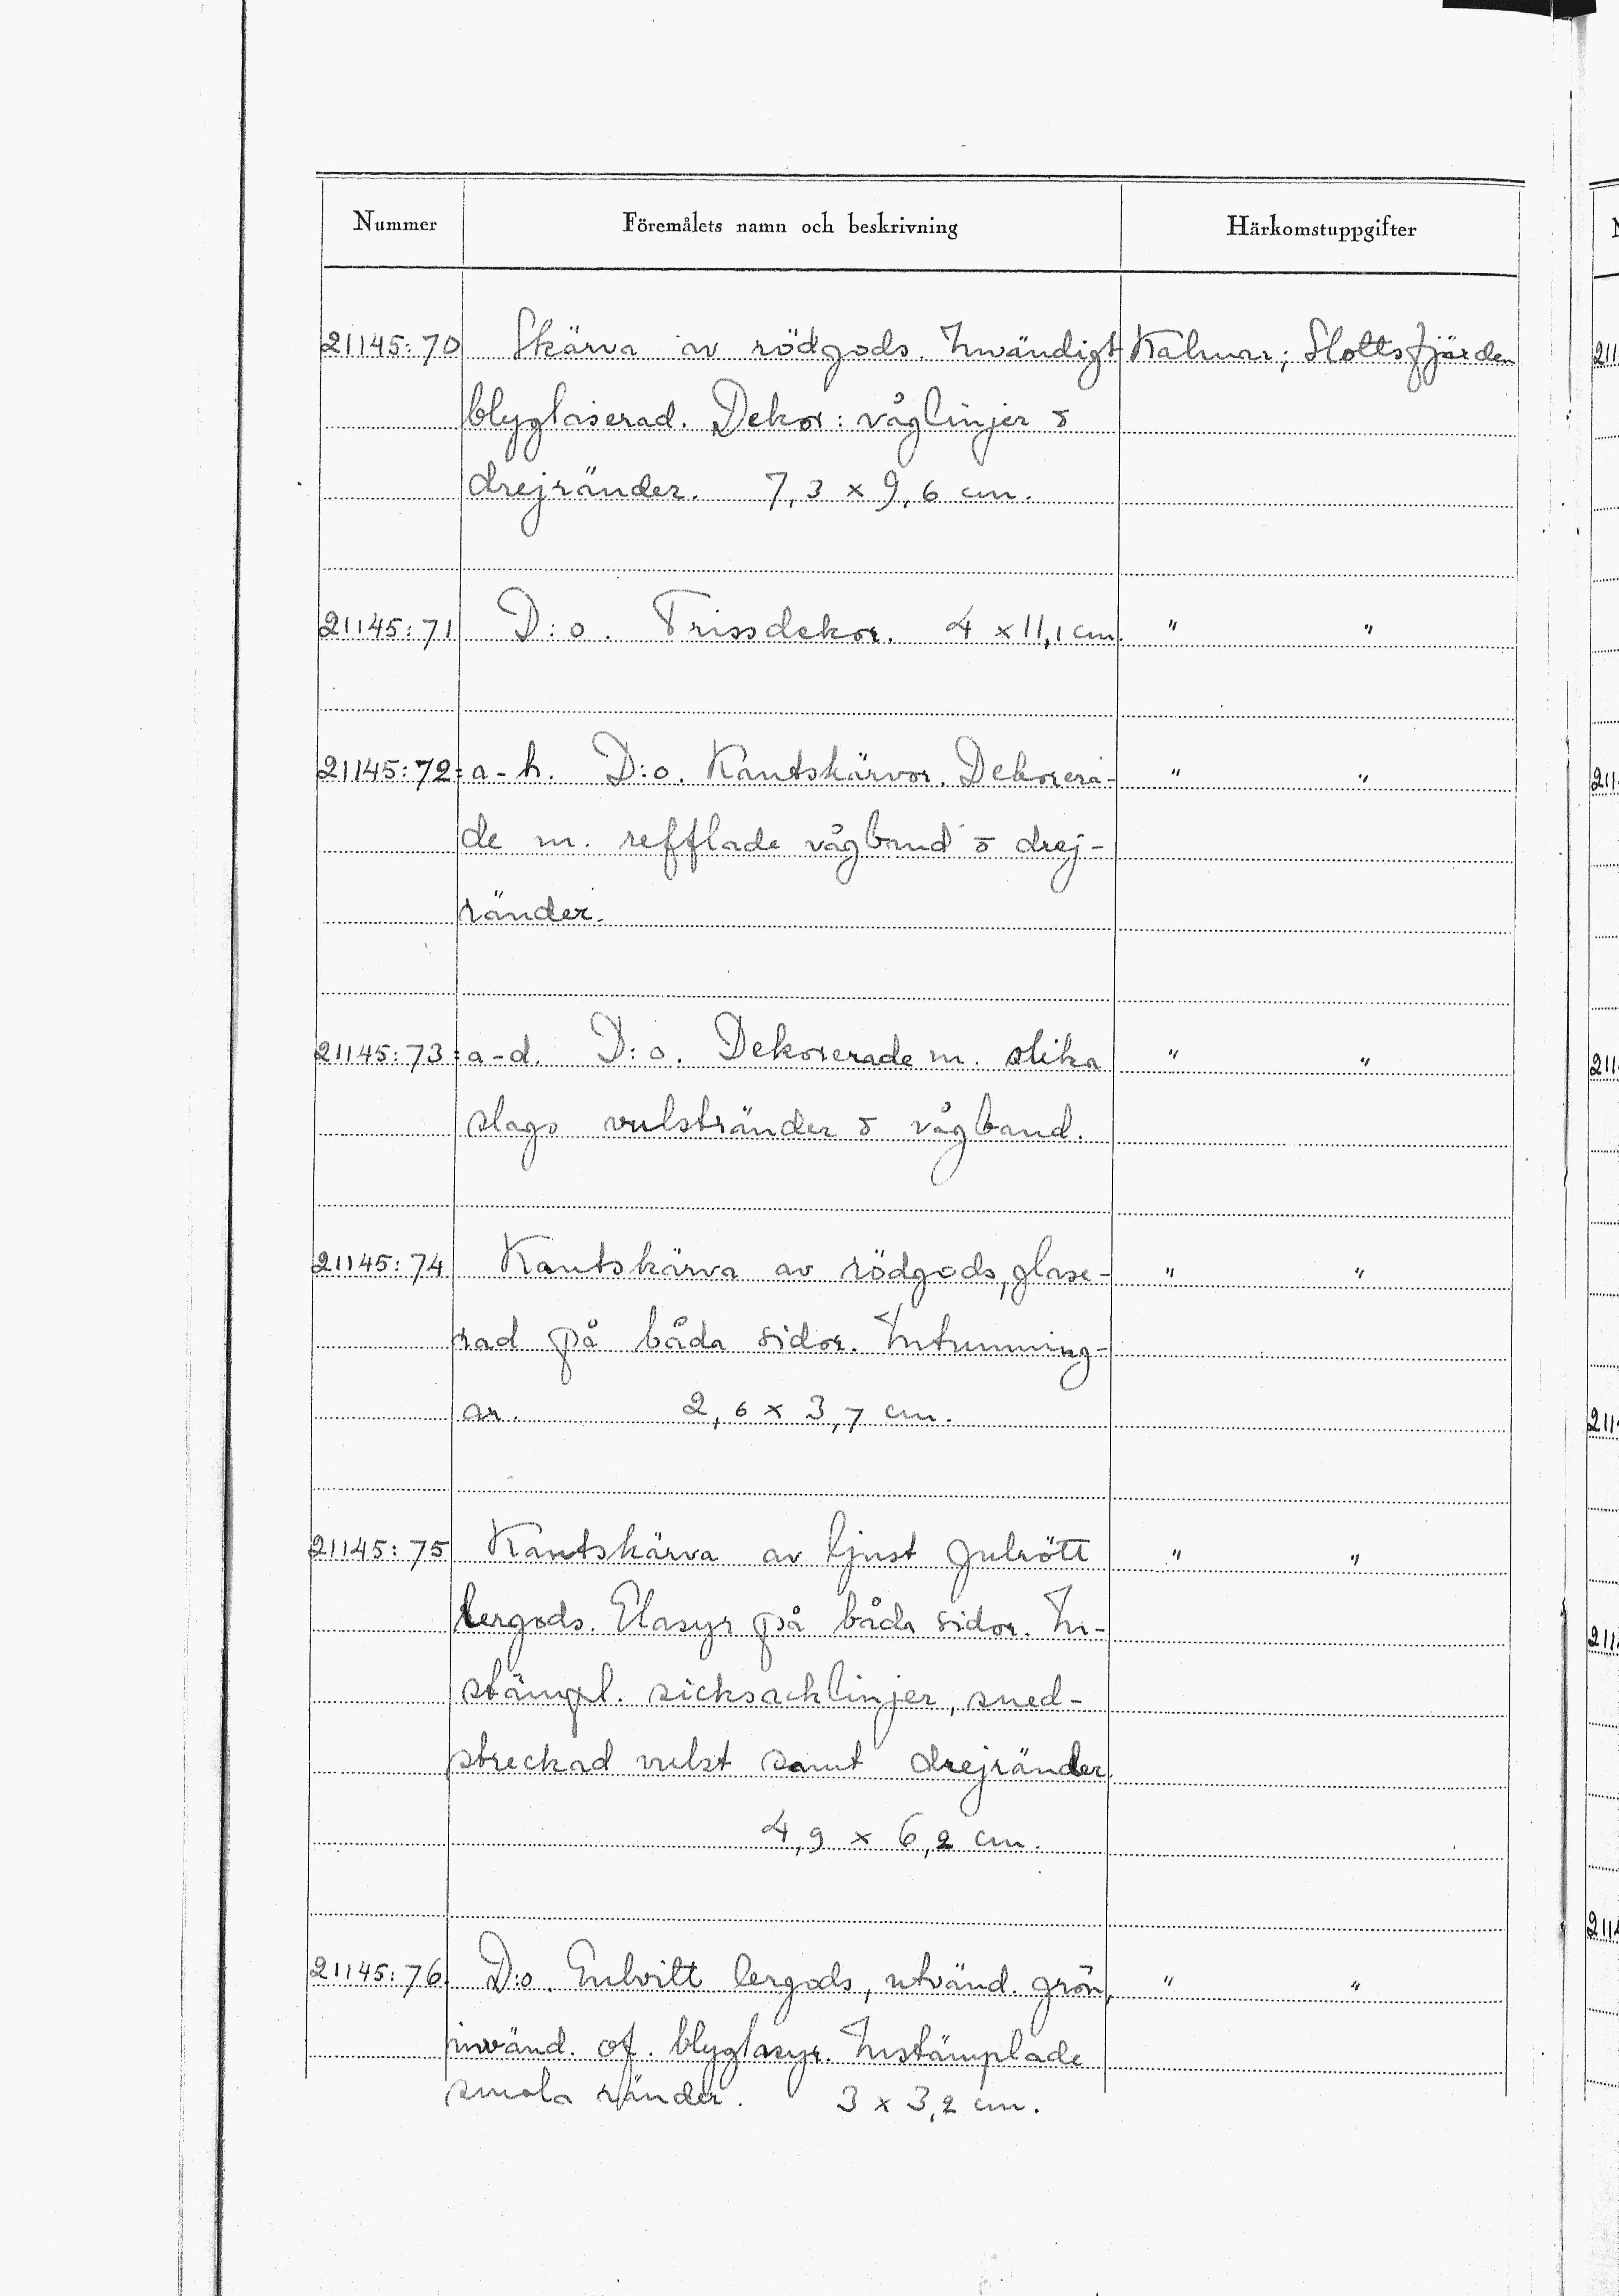 Nummer Föremålets namn och beskrivning Härkomstuppgifter
21145:70 Skärva av rödgods. Invändigt Kalmar; Slottsfjärden
blyglaserad. Dekor: våglinjer o
drejränder. 7,3 x 9,6 cm.
21145:71 D:o. Trissdekor. 4 x 11,1 cm. " "
21145:72: a-h. D:o. Kantskärvor. Dekorera- " "
de m. refflade vågband o drej-
ränder.
21145:73: a-d. D:o. Dekorerade m. olika " "
slags vulstränder o vågband.
21145:74 Kantskärva av rödgods, glase- " "
rad på båda sidor. Intumning-
ar. 2,6 x 3,7 cm.
21145:75 Kantskärva av ljust gulrött " "
lergods. Glasyr på båda sidor. In-
stämpl. sicksacklinjer, sned-
streckad vulst samt drejränder.
4,9 x 6,2 cm.
21145:76. D:o. Gulvitt lergods, utvänd. grön, " "
invänd. of. blyglasyr. Instämplade
smala ränder. 3 x 3,2 cm.